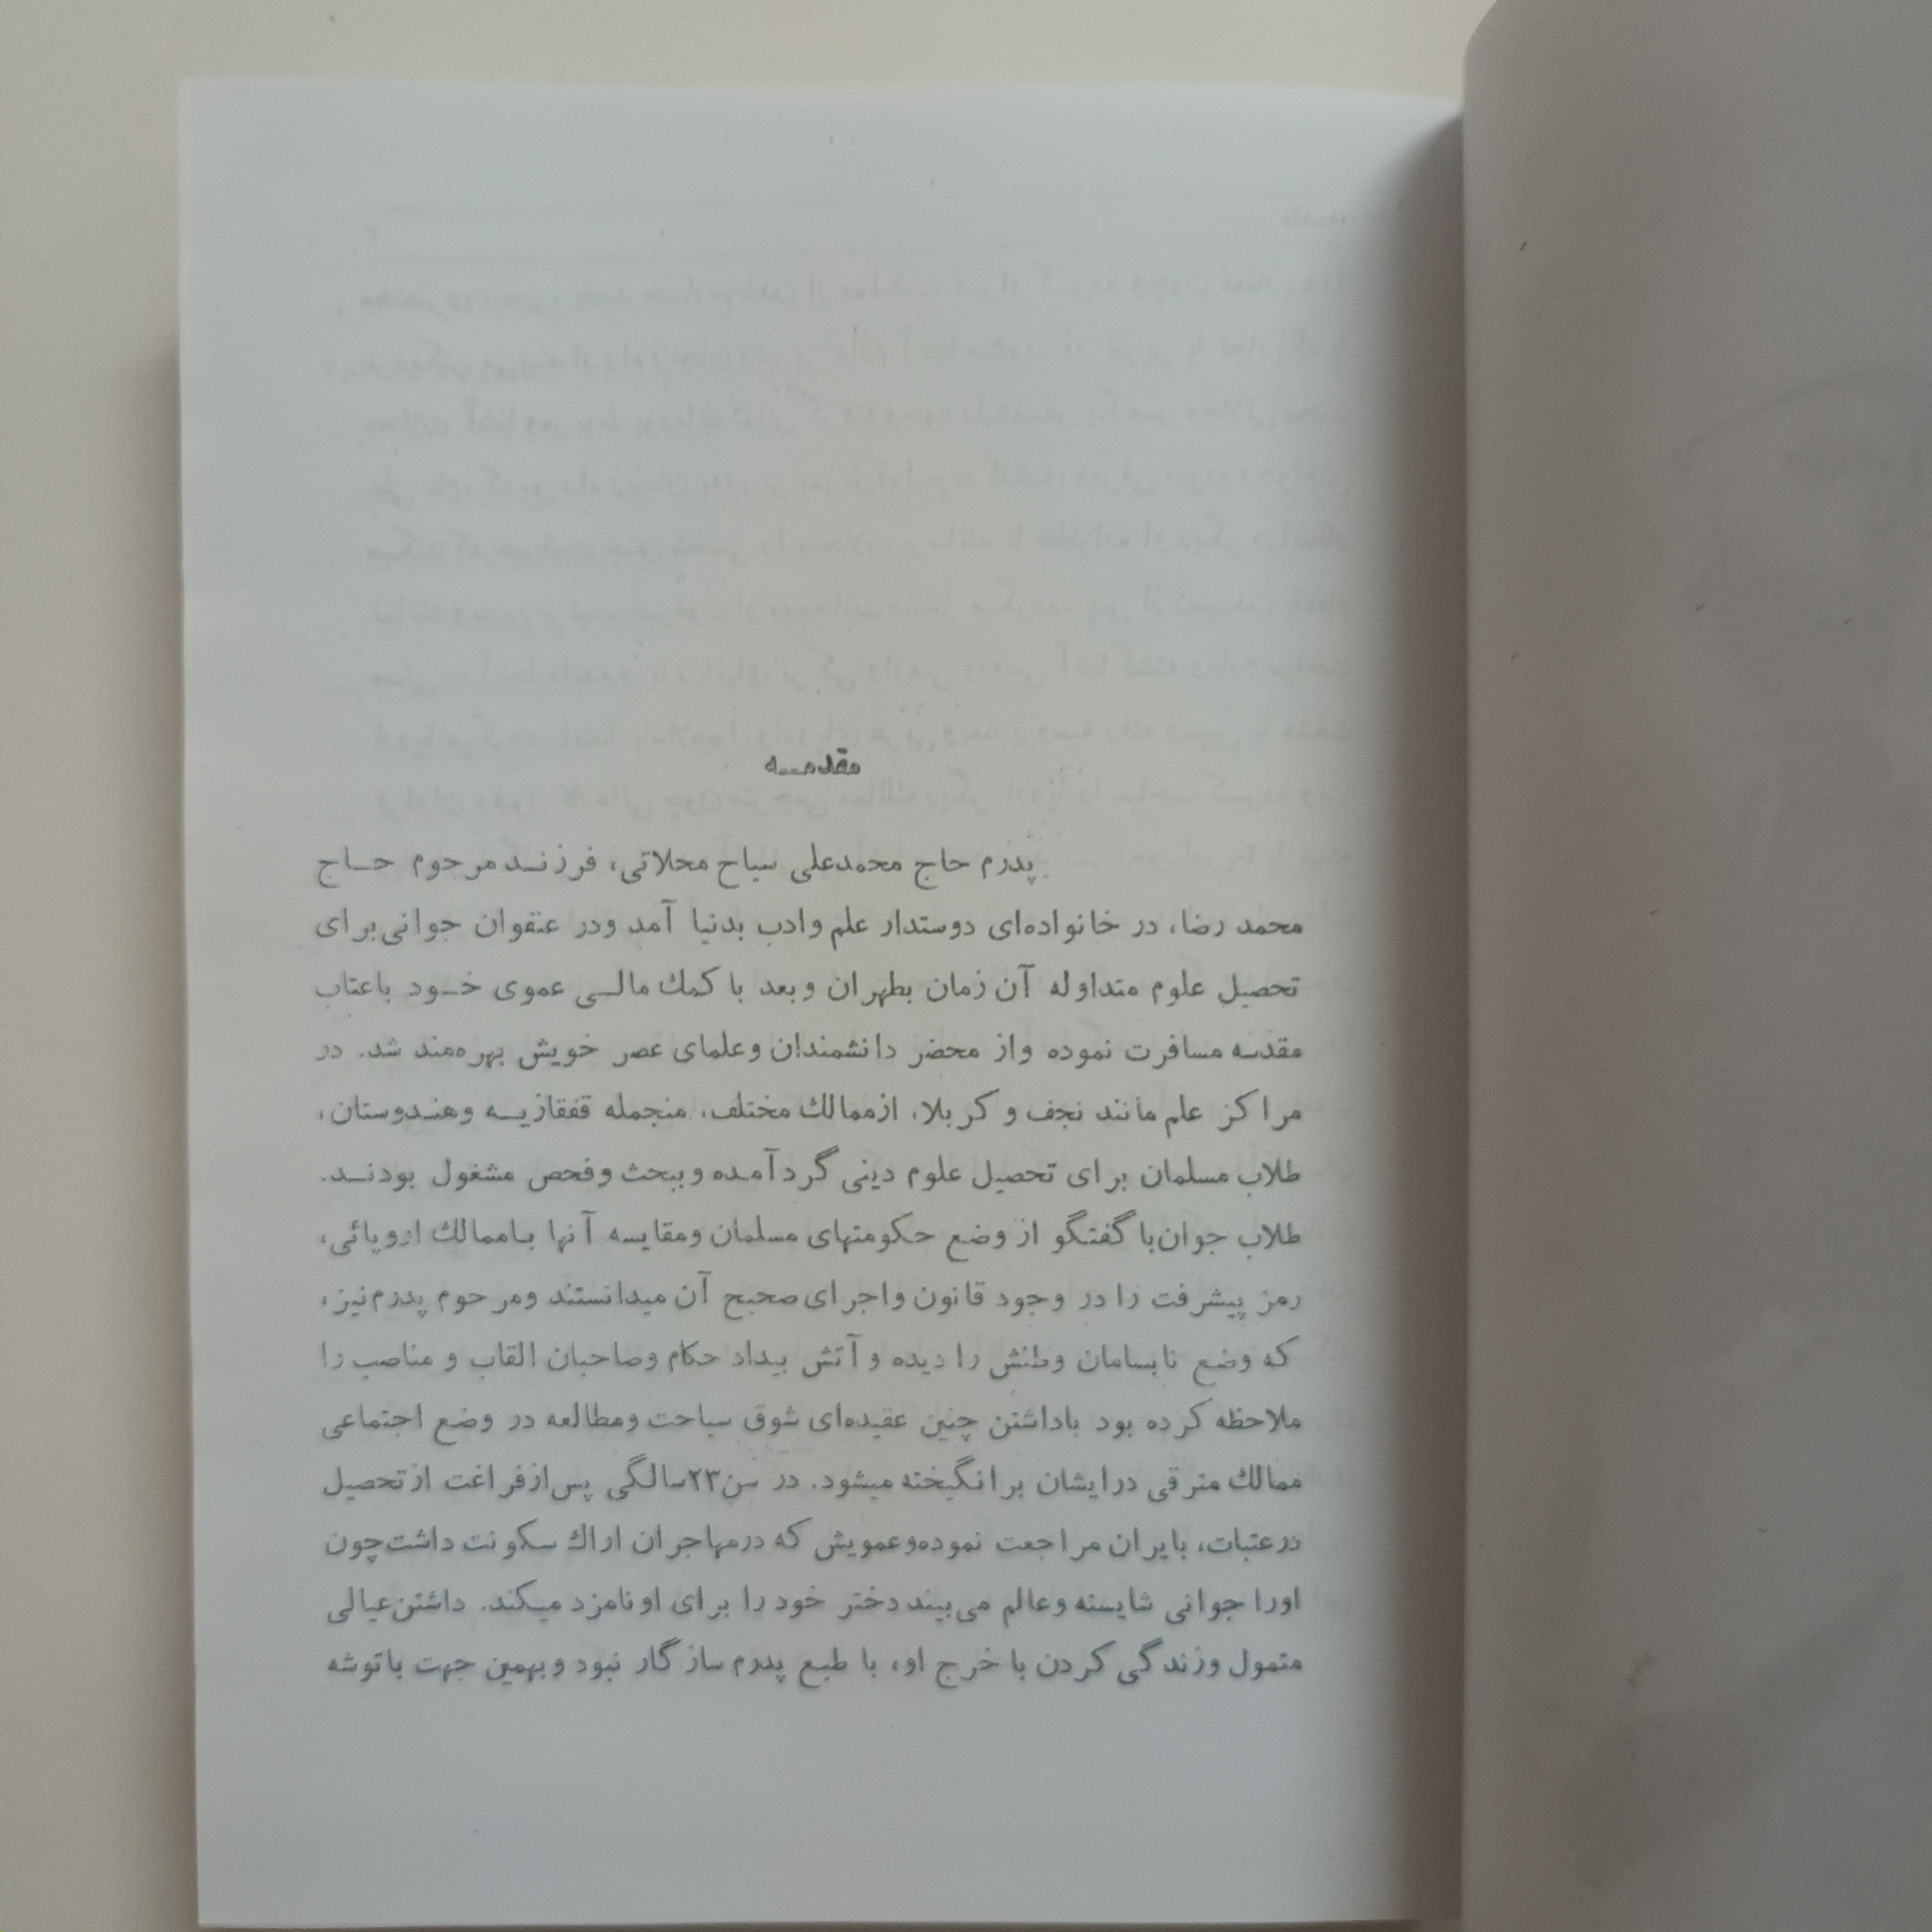 مقدمـــه
پدرم حاج محمدعلی سیاح محلاتی، فرزنــد مرحوم حــاج
محمد رضا، در خانواده‌ای دوستدار علم وادب بدنیا آمد ودر عنفوان جوانی‌برای
تحصیل علوم متداوله آن زمان بطهران وبعد با کمك مالــی عموی خــود باعتاب
مقدسه مسافرت نموده واز محضر دانشمندان وعلمای عصر خویش بهره‌مند شد. در
مراکز علم مانند نجف و کربلا، ازممالك مختلف، منجمله قفقازیــه وهنــدوستان،
طلاب مسلمان برای تحصیل علوم دینی گردآمده وببحث وفحص مشغول بودنــد.
طلاب جوان‌با گفتگو از وضع حکومتهای مسلمان ومقایسه آنها بـاممالك اروپائی،
رمز پیشرفت را در وجود قانون واجرای‌صحیح آن میدانستند ومرحوم پدرم‌نیز،
که وضع نابسامان وطنش را دیده و آتش بیداد حکام وصاحبان القاب و مناصب را
ملاحظه کرده بود باداشتن چنین عقیده‌ای شوق سیاحت ومطالعه در وضع اجتماعی
ممالك مترقی درایشان برانگیخته میشود. در سن۲۳سالگی پس‌ازفراغت ازتحصیل
درعتبات، بایران مراجعت نموده‌وعمویش که درمهاجران اراك سکونت داشت‌چون
اورا جوانی شایسته وعالم می‌بیند دختر خود را برای اونامزد میـکند. داشتن‌عیالی
متمول وزندگی کردن با خرج او، با طبع پدرم سازگار نبود وبهمین جهت باتوشه